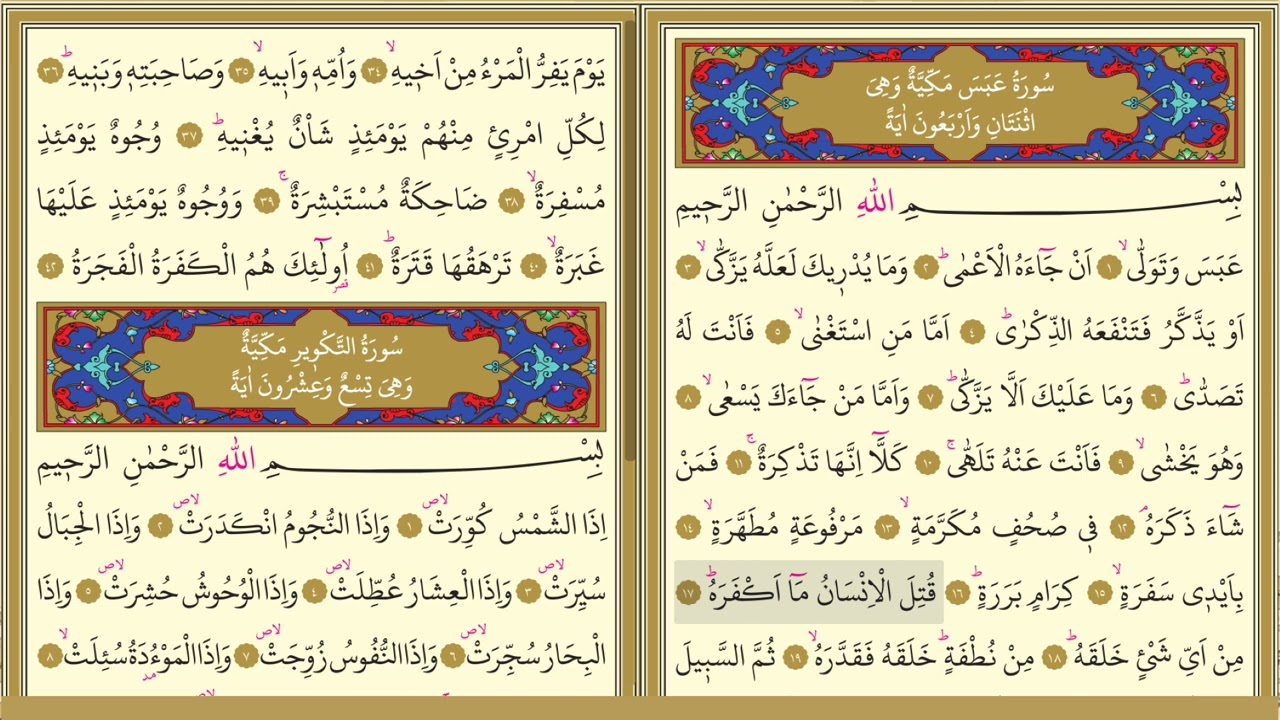 سُورَةُ عَبَسَ مَكِّيَّةٌ وَهِىَ
اثْنَتَانِ وَاَرْبَعُونَ اٰيَةً
بِسْمِ اللّٰهِ الرَّحْمٰنِ الرَّحٖيمِ
عَبَسَ وَتَوَلّٰىۙ ﴿١﴾ اَنْ جَٓاءَهُ الْاَعْمٰىؕ ﴿٢﴾ وَمَا يُدْرٖيكَ لَعَلَّهُ يَزَّكّٰىۙ ﴿٣﴾
اَوْ يَذَّكَّرُ فَتَنْفَعَهُ الذِّكْرٰىؕ ﴿٤﴾ اَمَّا مَنِ اسْتَغْنٰىۙ ﴿٥﴾ فَاَنْتَ لَهُ
تَصَدّٰىؕ ﴿٦﴾ وَمَا عَلَيْكَ اَلَّا يَزَّكّٰىؕ ﴿٧﴾ وَاَمَّا مَنْ جَٓاءَكَ يَسْعٰىۙ ﴿٨﴾
وَهُوَ يَخْشٰىۙ ﴿٩﴾ فَاَنْتَ عَنْهُ تَلَهّٰىۚ ﴿١٠﴾ كَلَّٓا اِنَّهَا تَذْكِرَةٌۚ ﴿١١﴾ فَمَنْ
شَٓاءَ ذَكَرَهُۢ ﴿١٢﴾ فٖى صُحُفٍ مُكَرَّمَةٍۙ ﴿١٣﴾ مَرْفُوعَةٍ مُطَهَّرَةٍۙ ﴿١٤﴾
بِاَيْدٖى سَفَرَةٍۙ ﴿١٥﴾ كِرَامٍ بَرَرَةٍؕ ﴿١٦﴾ قُتِلَ الْاِنْسَانُ مَٓا اَكْفَرَهُؕ ﴿١٧﴾
مِنْ اَىِّ شَىْئٍ خَلَقَهُؕ ﴿١٨﴾ مِنْ نُطْفَةٍؕ خَلَقَهُ فَقَدَّرَهُۙ ﴿١٩﴾ ثُمَّ السَّبٖيلَ
يَوْمَ يَفِرُّ الْمَرْءُ مِنْ اَخٖيهِۙ ﴿٣٤﴾ وَاُمِّهٖ وَاَبٖيهِۙ ﴿٣٥﴾ وَصَاحِبَتِهٖ وَبَنٖيهِؕ ﴿٣٦﴾
لِكُلِّ امْرِئٍ مِنْهُمْ يَوْمَئِذٍ شَاْنٌ يُغْنٖيهِؕ ﴿٣٧﴾ وُجُوهٌ يَوْمَئِذٍ
مُسْفِرَةٌۙ ﴿٣٨﴾ ضَاحِكَةٌ مُسْتَبْشِرَةٌۚ ﴿٣٩﴾ وَوُجُوهٌ يَوْمَئِذٍ عَلَيْهَا
غَبَرَةٌۙ ﴿٤٠﴾ تَرْهَقُهَا قَتَرَةٌؕ ﴿٤١﴾ اُولٰٓئِكَ هُمُ الْكَفَرَةُ الْفَجَرَةُ ﴿٤٢﴾
قصر
سُورَةُ التَّكْوٖيرِ مَكِّيَّةٌ
وَهِىَ تِسْعٌ وَعِشْرُونَ اٰيَةً
بِسْمِ اللّٰهِ الرَّحْمٰنِ الرَّحٖيمِ
اِذَا الشَّمْسُ كُوِّرَتْ لاص ﴿١﴾ وَاِذَا النُّجُومُ انْكَدَرَتْ لاص ﴿٢﴾ وَاِذَا الْجِبَالُ
سُيِّرَتْ لاص ﴿٣﴾ وَاِذَا الْعِشَارُ عُطِّلَتْ لاص ﴿٤﴾ وَاِذَا الْوُحُوشُ حُشِرَتْ لاص ﴿٥﴾ وَاِذَا
الْبِحَارُ سُجِّرَتْ لاص ﴿٦﴾ وَاِذَا النُّفُوسُ زُوِّجَتْ لاص ﴿٧﴾ وَاِذَا الْمَوْءُدَةُ سُئِلَتْۙ ﴿٨﴾
مد